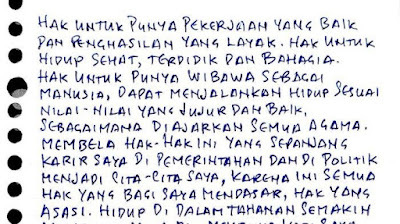 HAK UNTUK PUNYA PEKERJAAN YANG BAIK
DAN PENGHASILAN YANG LAYAK. HAK UNTUK
HIDUP SEHAT, TERDIDIK DAN BAHAGIA.
HAK UNTUK PUNYA WIBAWA SEBAGAI
MANUSIA, DAPAT MENJALANKAN HIDUP SESUAI
NILAI-NILAI YANG JUJUR DAN BAIK,
SEBAGAIMANA DIAJARKAN SEMUA AGAMA.
MEMBELA HAK-HAK INI YANG SEPANJANG
KARIR SAYA DI PEMERINTAHAN DAN DI POLITIK
MENJADI CITA-CITA SAYA, KARENA INI SEMUA
HAK YANG BAGI SAYA MENDASAR, HAK YANG
ASASI. HIDUP DI DALAM TAHANAN SEMAKIN